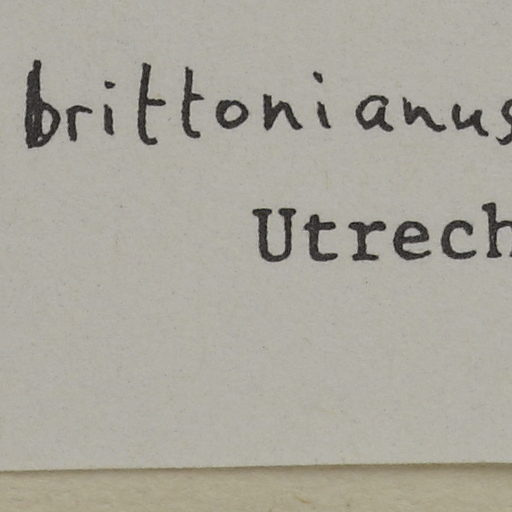 brittonianus
Utrech